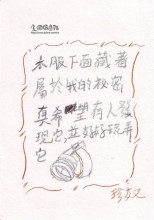 衣服下面藏著
屬於我的秘密
真希望有人發
現它,並好好玩弄
它